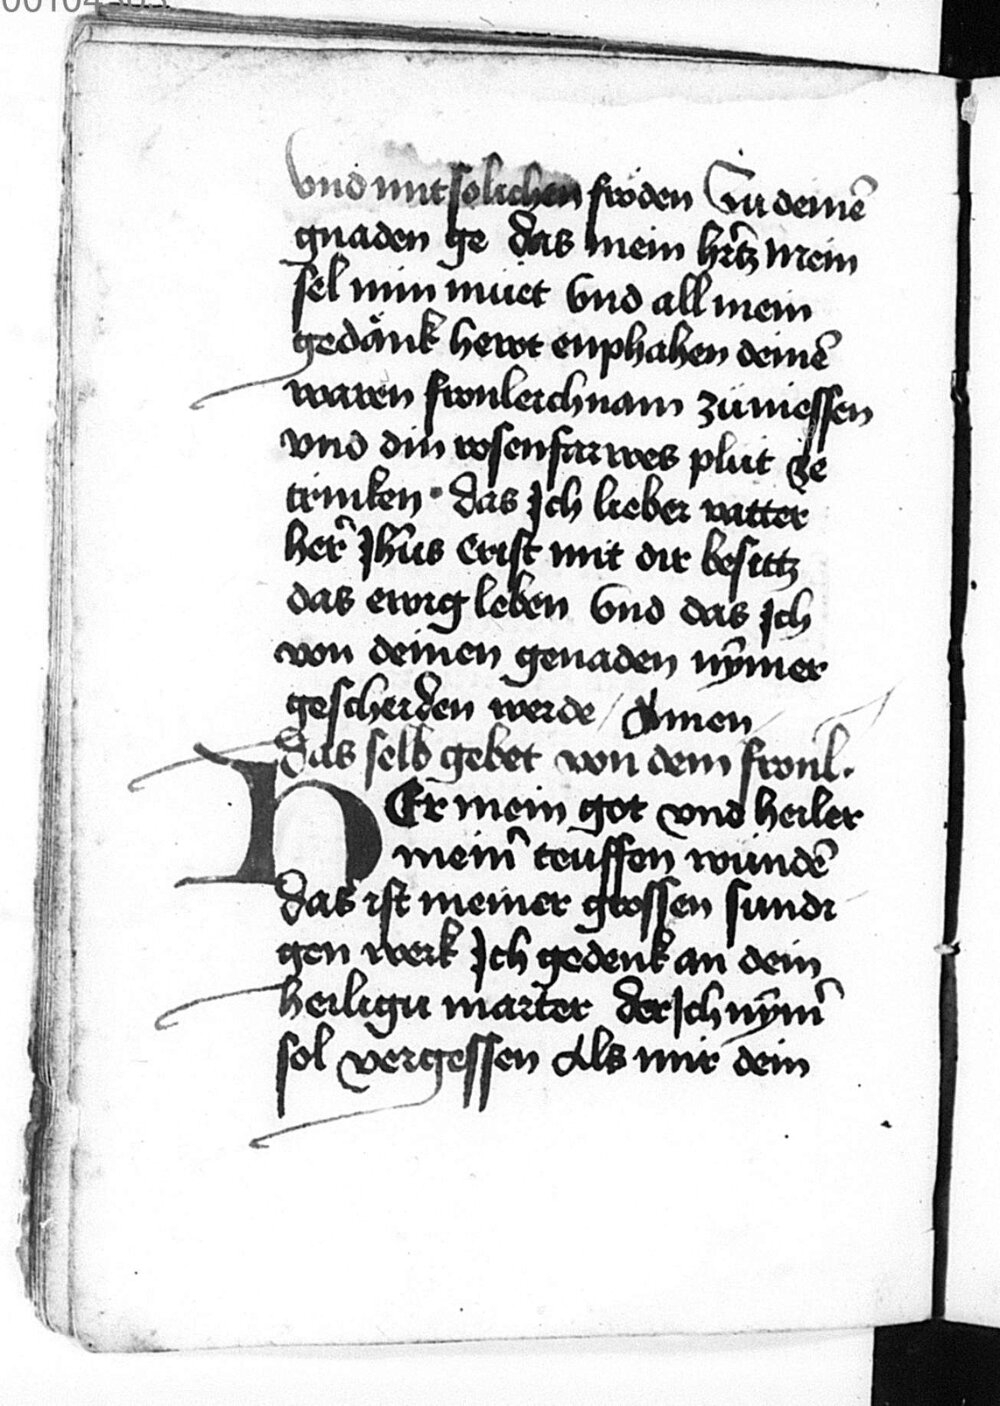 vnd mit solichen fröden Zu deinē
gnaden ge das mein hr̄tz mein
sel min müet Vnd all mein
gedänk hewt enphahen deinē
waren fronleichnam zü niessen
vnd din rosenfarwes plüt ze
trinken · das Jch lieber vatter
her̄ Jhūs Crist mit dir besittz
das ewig leben Vnd das Jch
von deinen genaden nȳmer
gescheiden werde / Amen
das selb gebet von dem fronl.
HEr mein got vnd heiler
mein̄ teuffen wündē
das ist meiner grossen sundi
gen werk Jch gedenk an dein
heiligu marter der Jch nȳm̄
sol vergessen Als mir dein